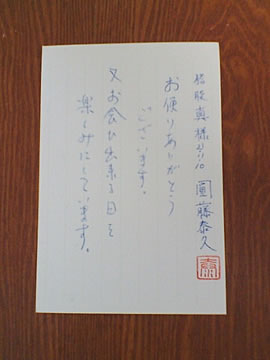 真様 21.11.10 圓藤泰久
お便りありがとう
ございます。
又お会い出来る日を
楽しみにしています。
泰